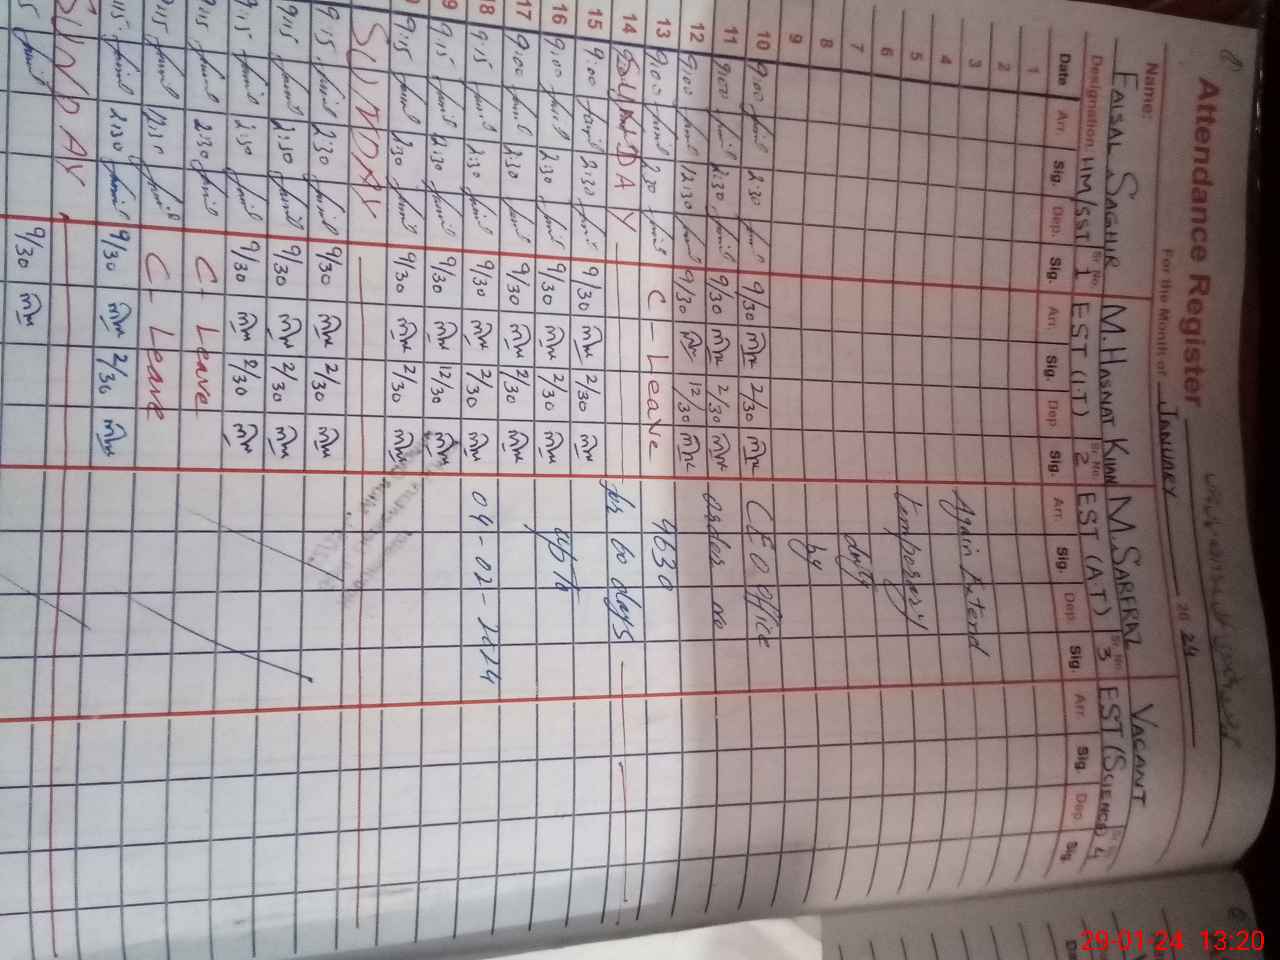 Attendance Register
For the Month of JANUARY 20 24
Name: FAISAL SAGHIR M. HASNAT KHAN M. SARFRAZ VACANT
Designation: HM/SST Sr. No. 1 EST (I.T) Sr. No. 2 EST (A.T) Sr. No. 3 EST (SCIENCE) 4
Date Arr. Sig. Dep. Sig. Arr. Sig. Dep. Sig. Arr. Sig. Dep. Sig. Arr. Sig. Dep. Sig.
1
2
3
4 Again Extend
5
6 Temporary
7
8 duty
9 by
10 9:00 2:30 9/30 2/30 CEO office
11 9:00 2:30 9/30 2/30 order no
12 9:00 12:30 9/30 12/30
13 9:00 2:30 C - Leave 9630
14 SUNDAY for 60 days
15 9:00 2:30 9/30 2/30
16 9:00 2:30 9/30 2/30 upto
17 9:00 2:30 9/30 2/30
18 9:15 2:30 9/30 2/30 04-02-2024
19 9:15 2:30 9/30 12/30
9:15 2:30 9/30 2/30
SUNDAY
9:15 2:30 9/30 2/30
9:15 2:30 9/30 2/30
9:15 2:30 9/30 2/30
9:15 2:30 C - Leave
9:15 12:30 C - Leave
9:15 2:30 9/30 2/30
SUNDAY
9:15 9/30
29-01-24 13:20